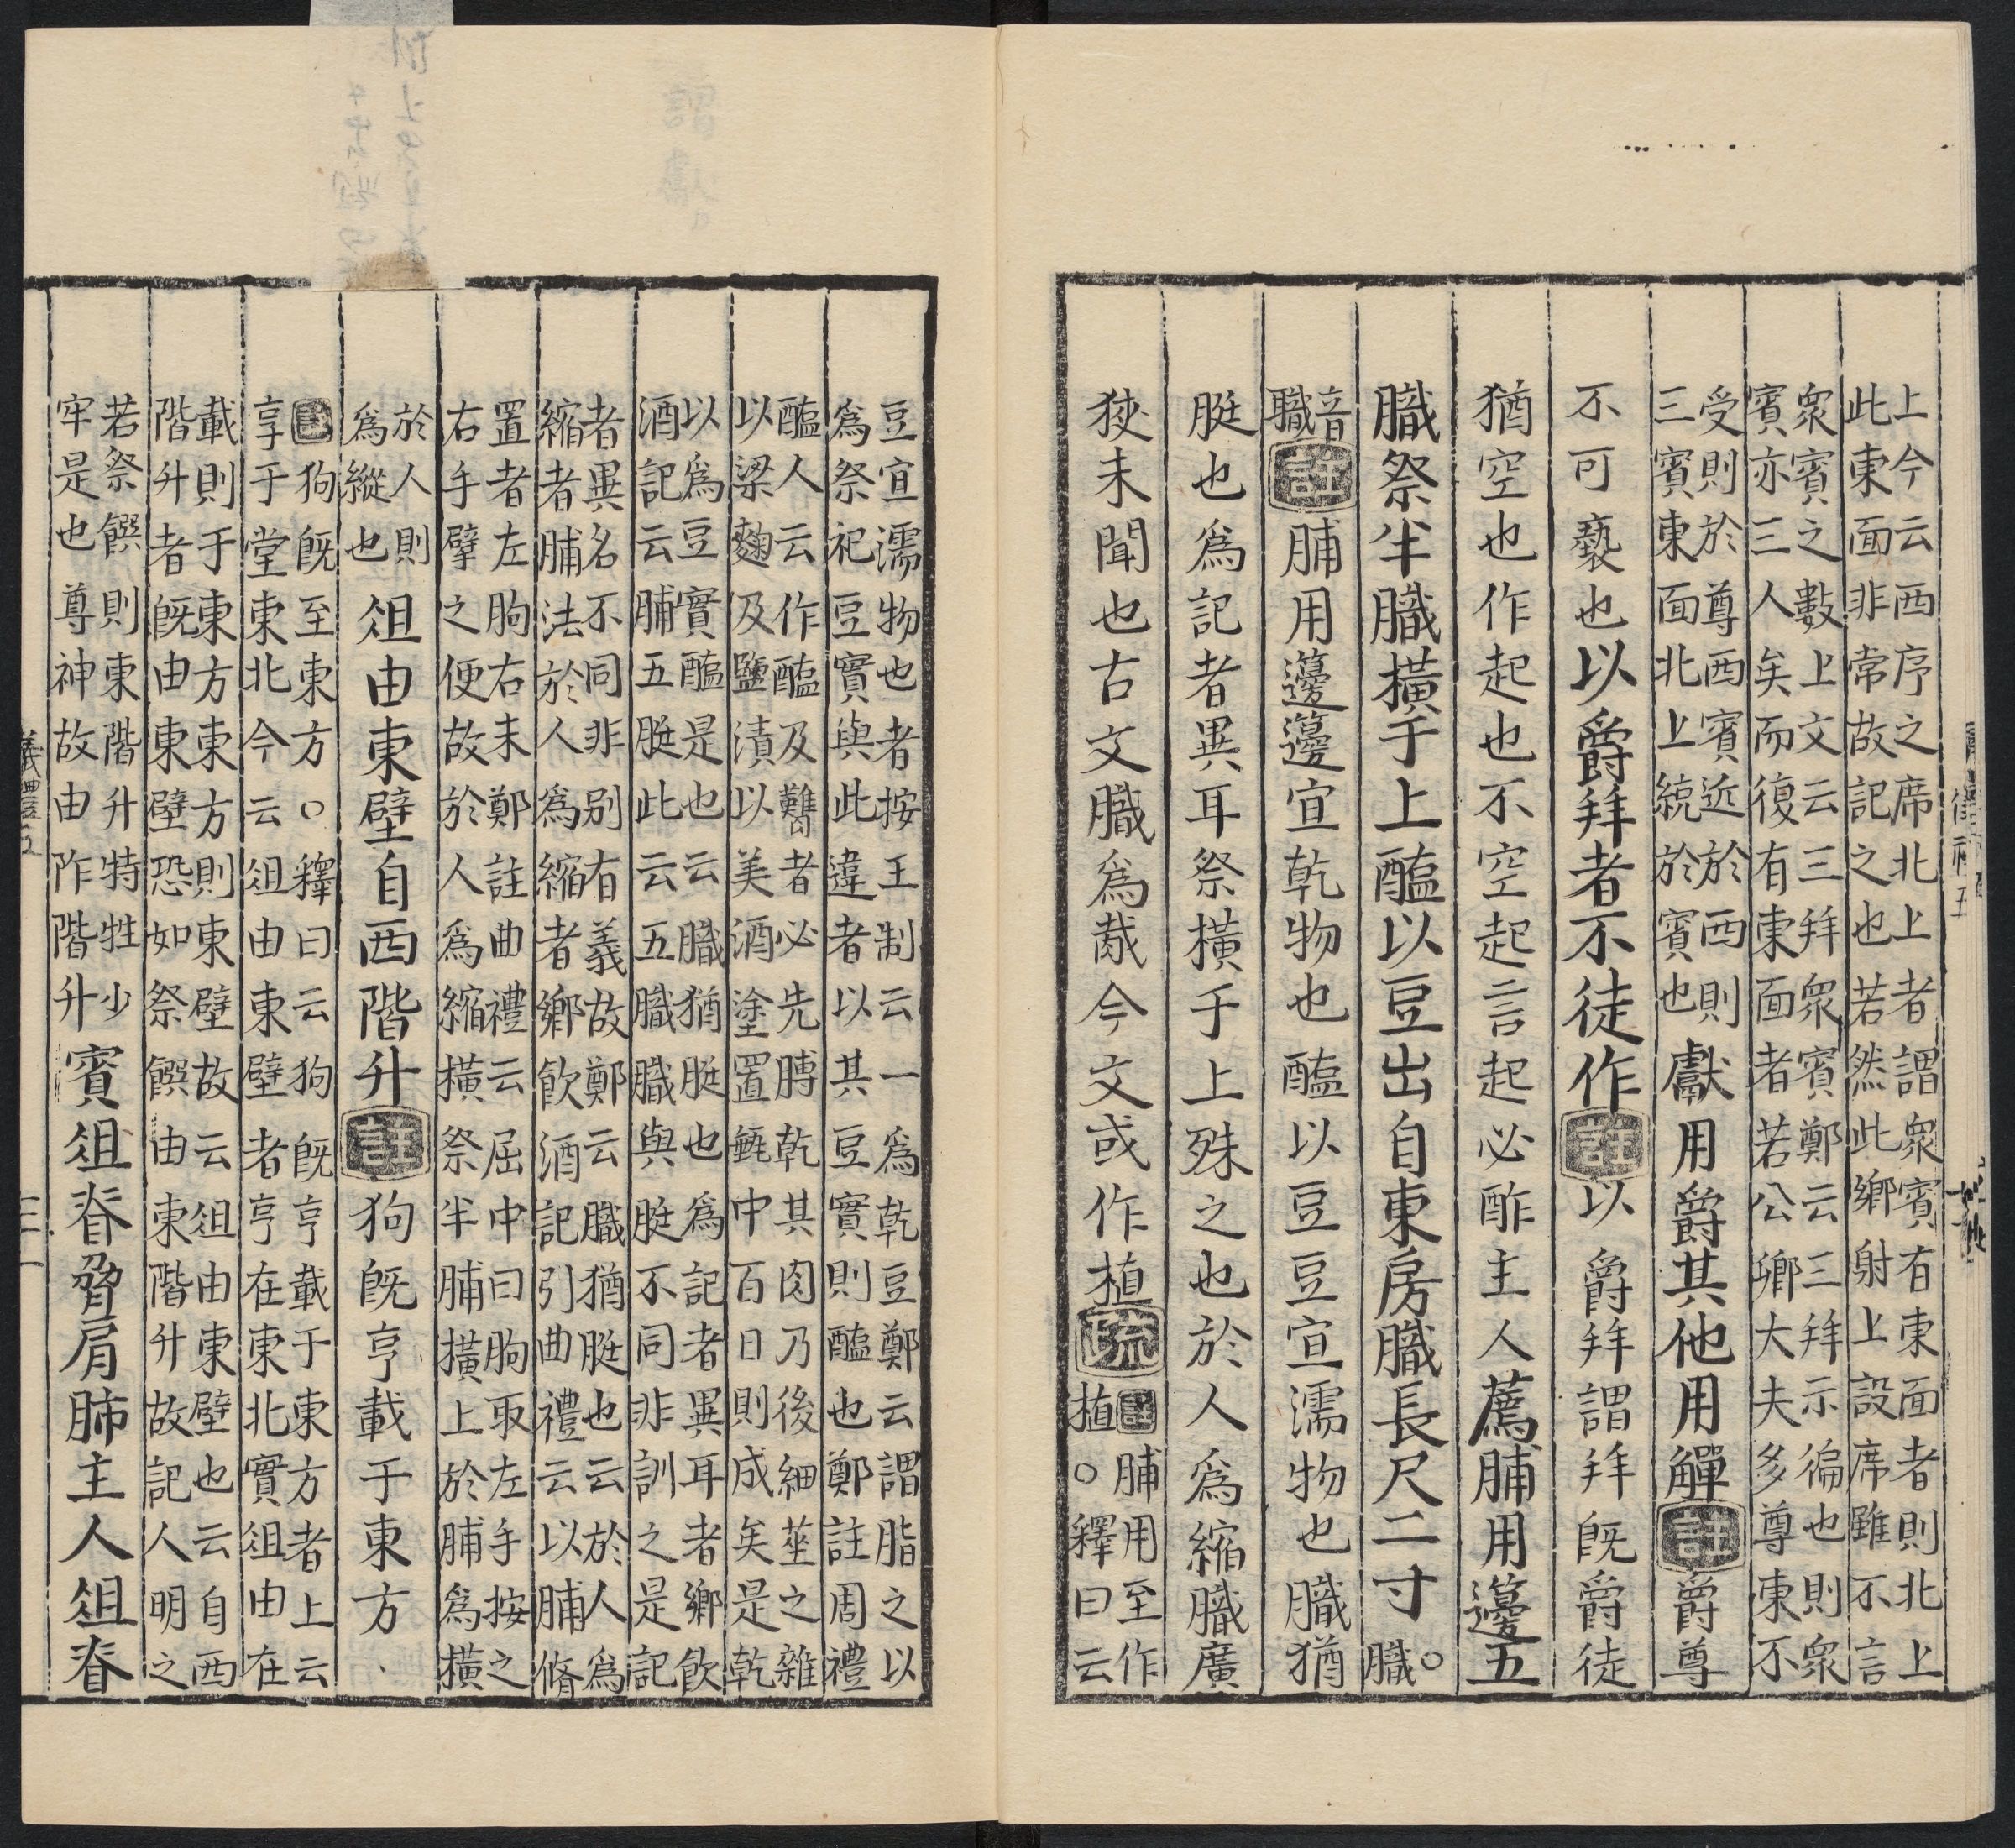 上今云西序之席北上者謂衆賓有東面者則北上
此東面非常故記之也若然此鄉射上設席雖不言
衆賓之數上文云三拜衆賓鄭云三拜示徧也則衆
賓亦三人矣而復有東面者若公鄉大夫多尊東不
受則於尊西賓近於西則
三賓東面北上統於賓也獻用爵其他用觶註爵尊
不可褻也以爵拜者不徒作註以爵拜謂拜既爵徒
猶空也作起也不空起言起必酢主人薦脯用籩五
膱祭半膱橫于上醢以豆出自東房膱長尺二寸膱○
音
職註脯用籩籩宜乾物也醢以豆豆宜濡物也膱猶
脡也爲記者異耳祭橫于上殊之也於人爲縮膱廣
狹未聞也古文膱爲胾今文或作植疏註脯用至作
植○釋曰云
豆宜濡物也者按王制云一爲乾豆鄭云謂腊之以
爲祭祀豆實與此違者以其豆實則醢也鄭註周禮
醢人云作醢及臡者必先膊乾其肉乃後細莝之雜
以梁麴及鹽漬以美酒塗置甀中百日則成矣是乾
以爲豆實醢是也云膱猶脡也爲記者異耳者鄉飲
酒記云脯五脡此云五膱膱與脡不同非訓之是記
者異名不同非别有義故鄭云膱猶脡也云於人爲
縮者脯法於人爲縮者鄉飲酒記引曲禮云以脯脩
置者左朐右末鄭註曲禮云屈中曰朐取左手按之
右手擘之便故於人爲縮橫祭半脯橫上於脯爲橫
於人則
爲縱也俎由東壁自西階升註狗既亨載于東方
註狗既至東方○釋曰云狗既亨載于東方者上云
享于堂東北今云俎由東壁者亨在東北實俎由在
載則于東方東方則東壁故云俎由東壁也云自西
階升者既由東壁恐如祭饌由東階升故記人明之
若祭饌則東階升特牲少
牢是也尊神故由阼階升賓俎脊脅肩肺主人俎脊